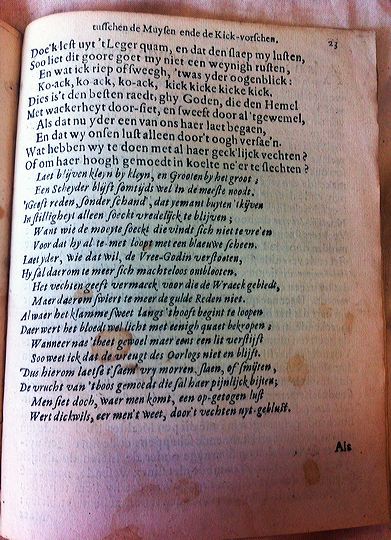 tusschen de Muysen ende de Kick-vorschen. 23
Doe'k lest uyt 'tLeger quam, en dat den slaep my lusten,
Soo liet dit goore goet my niet een weynigh rusten,
En wat ick riep of sweegh, 'twas yder oogenblick:
Ko-ack, ko-ack, ko-ack, kick kicke kicke kick.
Dies is't den besten raedt, ghy Goden, die den Hemel
Met wackerheyt door-siet, en sweeft door al 'tgewemel,
Als dat nu yder een van ons haer laet begaen,
En dat wy onsen lust alleen door't oogh versae'n.
Wat hebben wy te doen met al haer geck'lijck vechten?
Of om haer hoogh gemoedt in koelte ne'er te slechten?
Laet blijven kleyn by kleyn, en Groot en by het groot;
Een Scheyder blijft somtijds wel in de meeste noodt.
'tGeeft reden, sonder schand', dat yemant buyten 'tkijven
In stilligheyt alleen soeckt vredelijck te blijven;
Want wie de moeyte soeckt die vindt sich niet te vre'en
Voor dat hy al te-met loopt met een blaeuwe scheen.
Laet yder, wie dat wil, de Vree-Godin verstooten,
Hy sal daerom te meer sich machteloos ontblooten.
Het vechten geeft vermaeck voor die de Wraeck gebiedt,
Maer daerom swiert te meer de gulde Reden niet.
Al waer het klamme sweet langs 'thooft begint te loopen
Daer wert het bloedt wel licht met eenigh quaet bekropen;
Wanneer nae 'theet gewoel maer eens een lit verstijft
Soo weet ick dat de vreugt des Oorlogs niet en blijft.
Dus hierom laetse t'saem vry morren, slaen, of smijten,
De vrucht van 'tboos gemoedt die sal haer pijnlijck bijten;
Men siet doch, waer men komt, een op-getogen lust
Wert dickwils, eer men't weet, door't vechten uyt-geblust.
Als